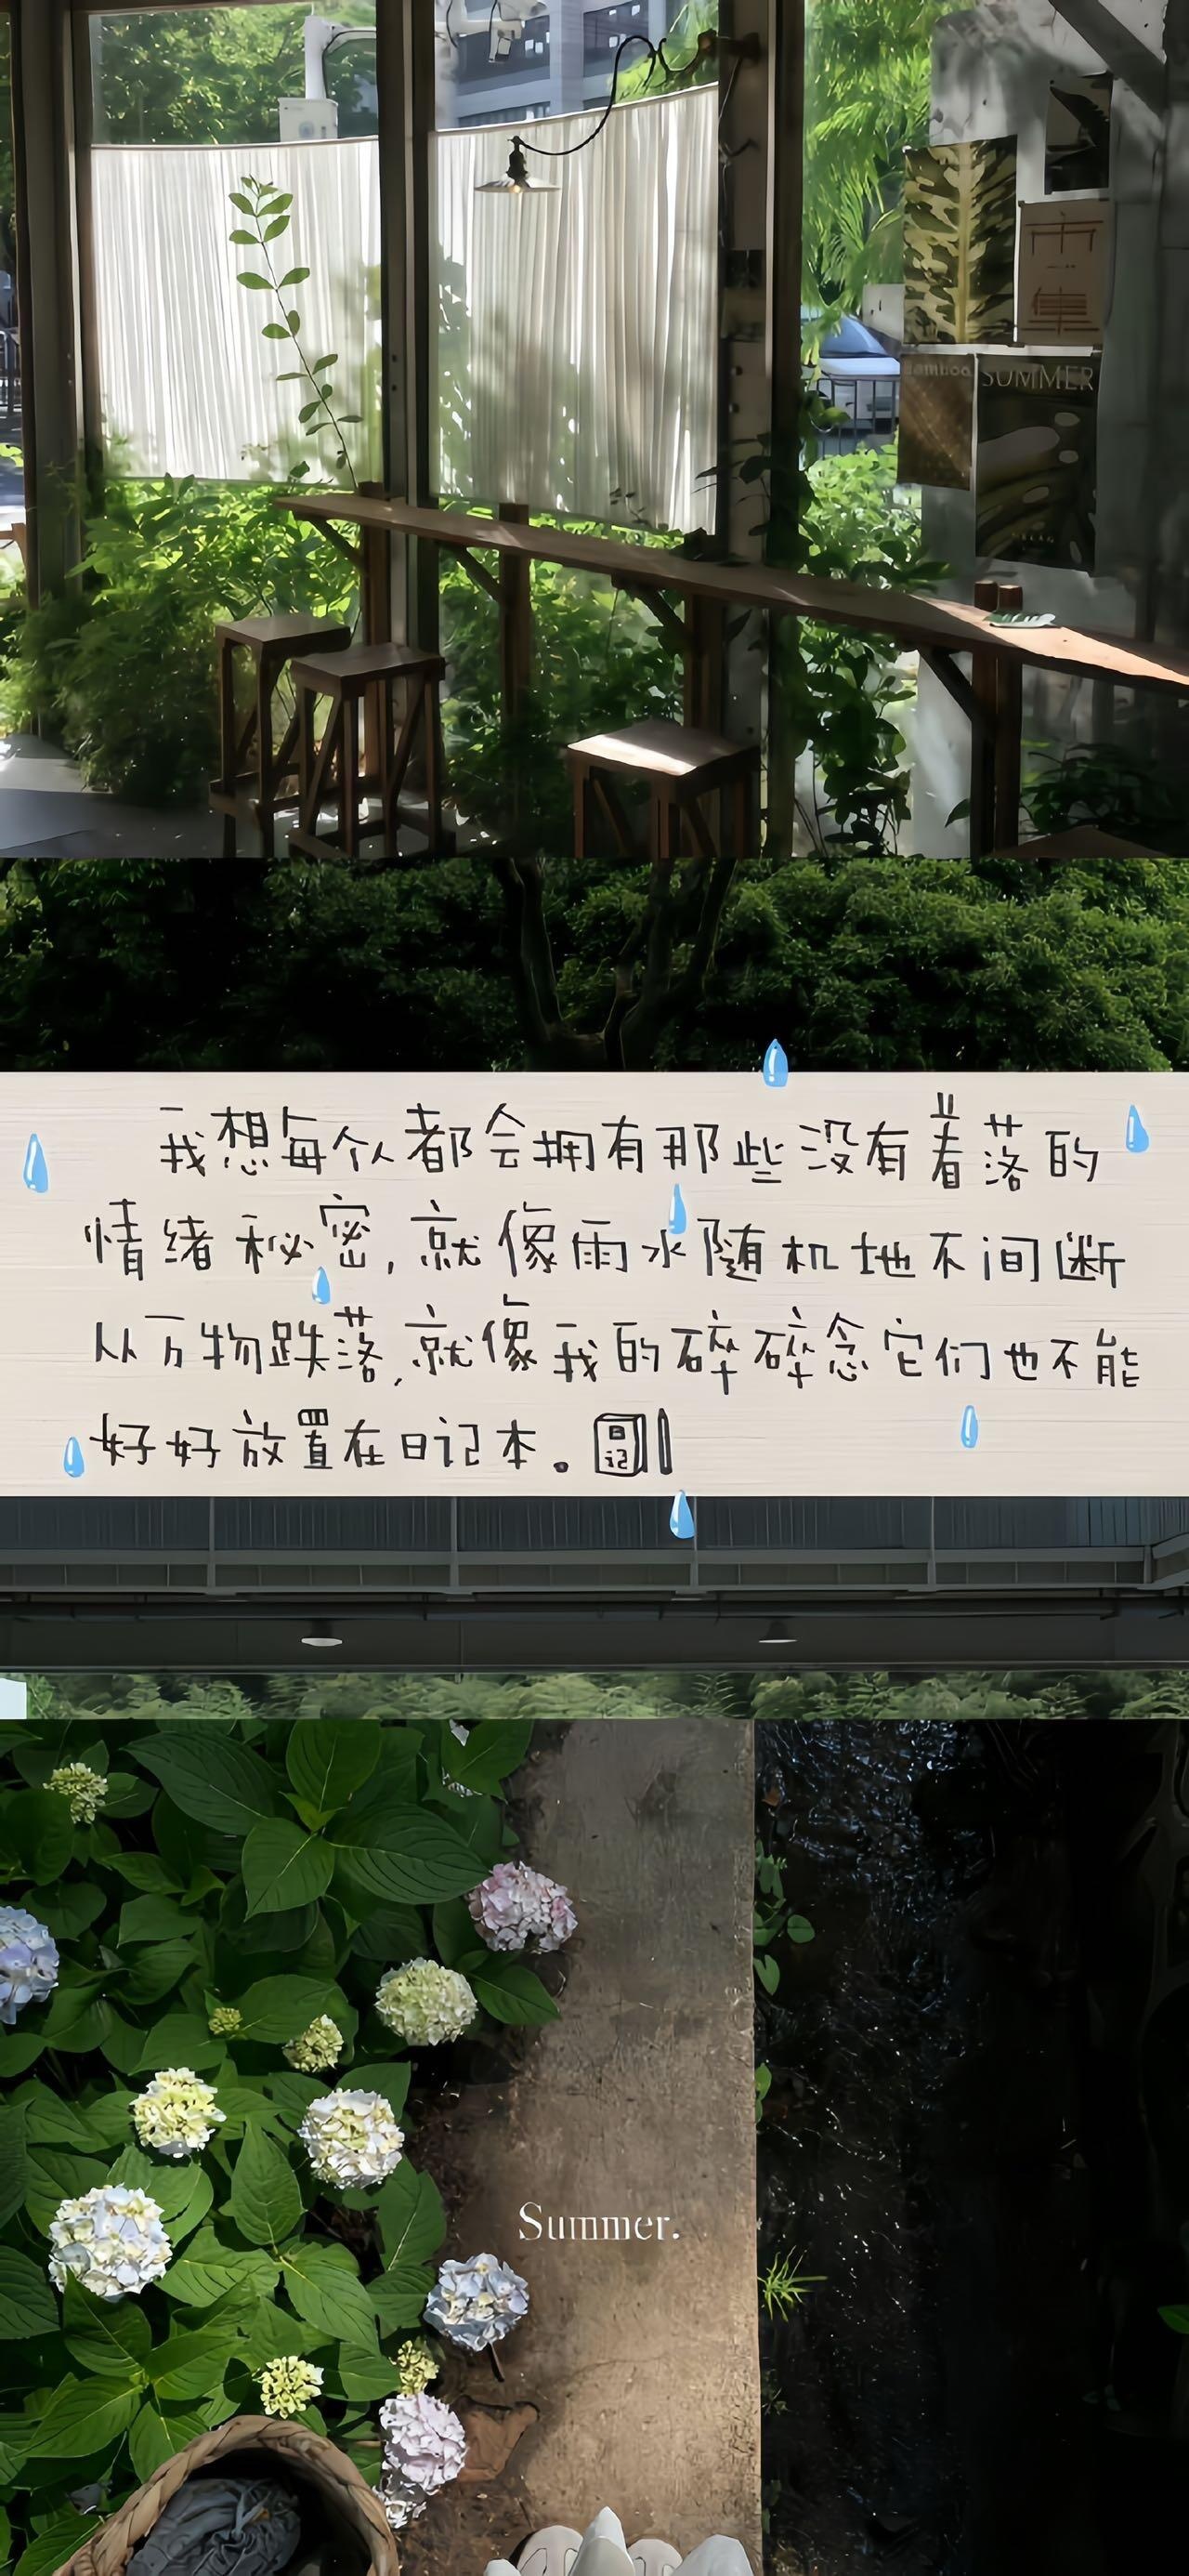 Bamboo
SUMMER
我想每个人都会拥有那些没有着落的
情绪秘密,就像雨水随机地不间断
从万物跌落,就像我的碎碎念它们也不能
好好放置在日记本。
日记
Summer.